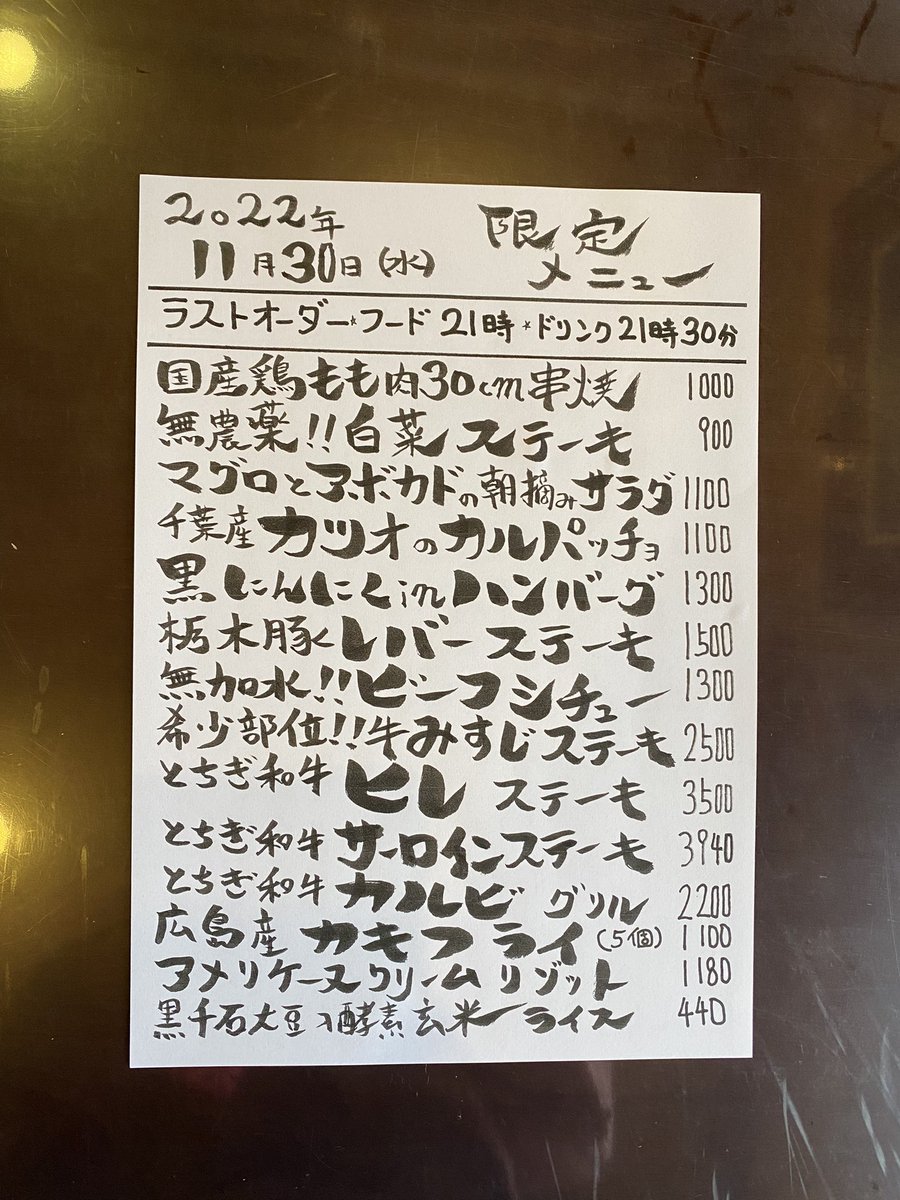 2022年
11月30日(水)
限定
メニュー
ラストオーダー☆フード21時☆ドリンク21時30分
国産鶏もも肉30cm串焼 1000
無農薬!!白菜ステーキ 900
マグロとアボカドの朝摘みサラダ 1100
千葉産カツオのカルパッチョ 1100
黒にんにくinハンバーグ 1300
栃木豚レバーステーキ 1500
無加水!!ビーフシチュー 1300
希少部位!!牛みすじステーキ 2500
とちぎ和牛ヒレステーキ 3500
とちぎ和牛サーロインステーキ 3940
とちぎ和牛カルビグリル 2200
広島産カキフライ(5個) 1100
アメリケーヌクリームリゾット 1180
黒千石大豆入酵素玄米ライス 440